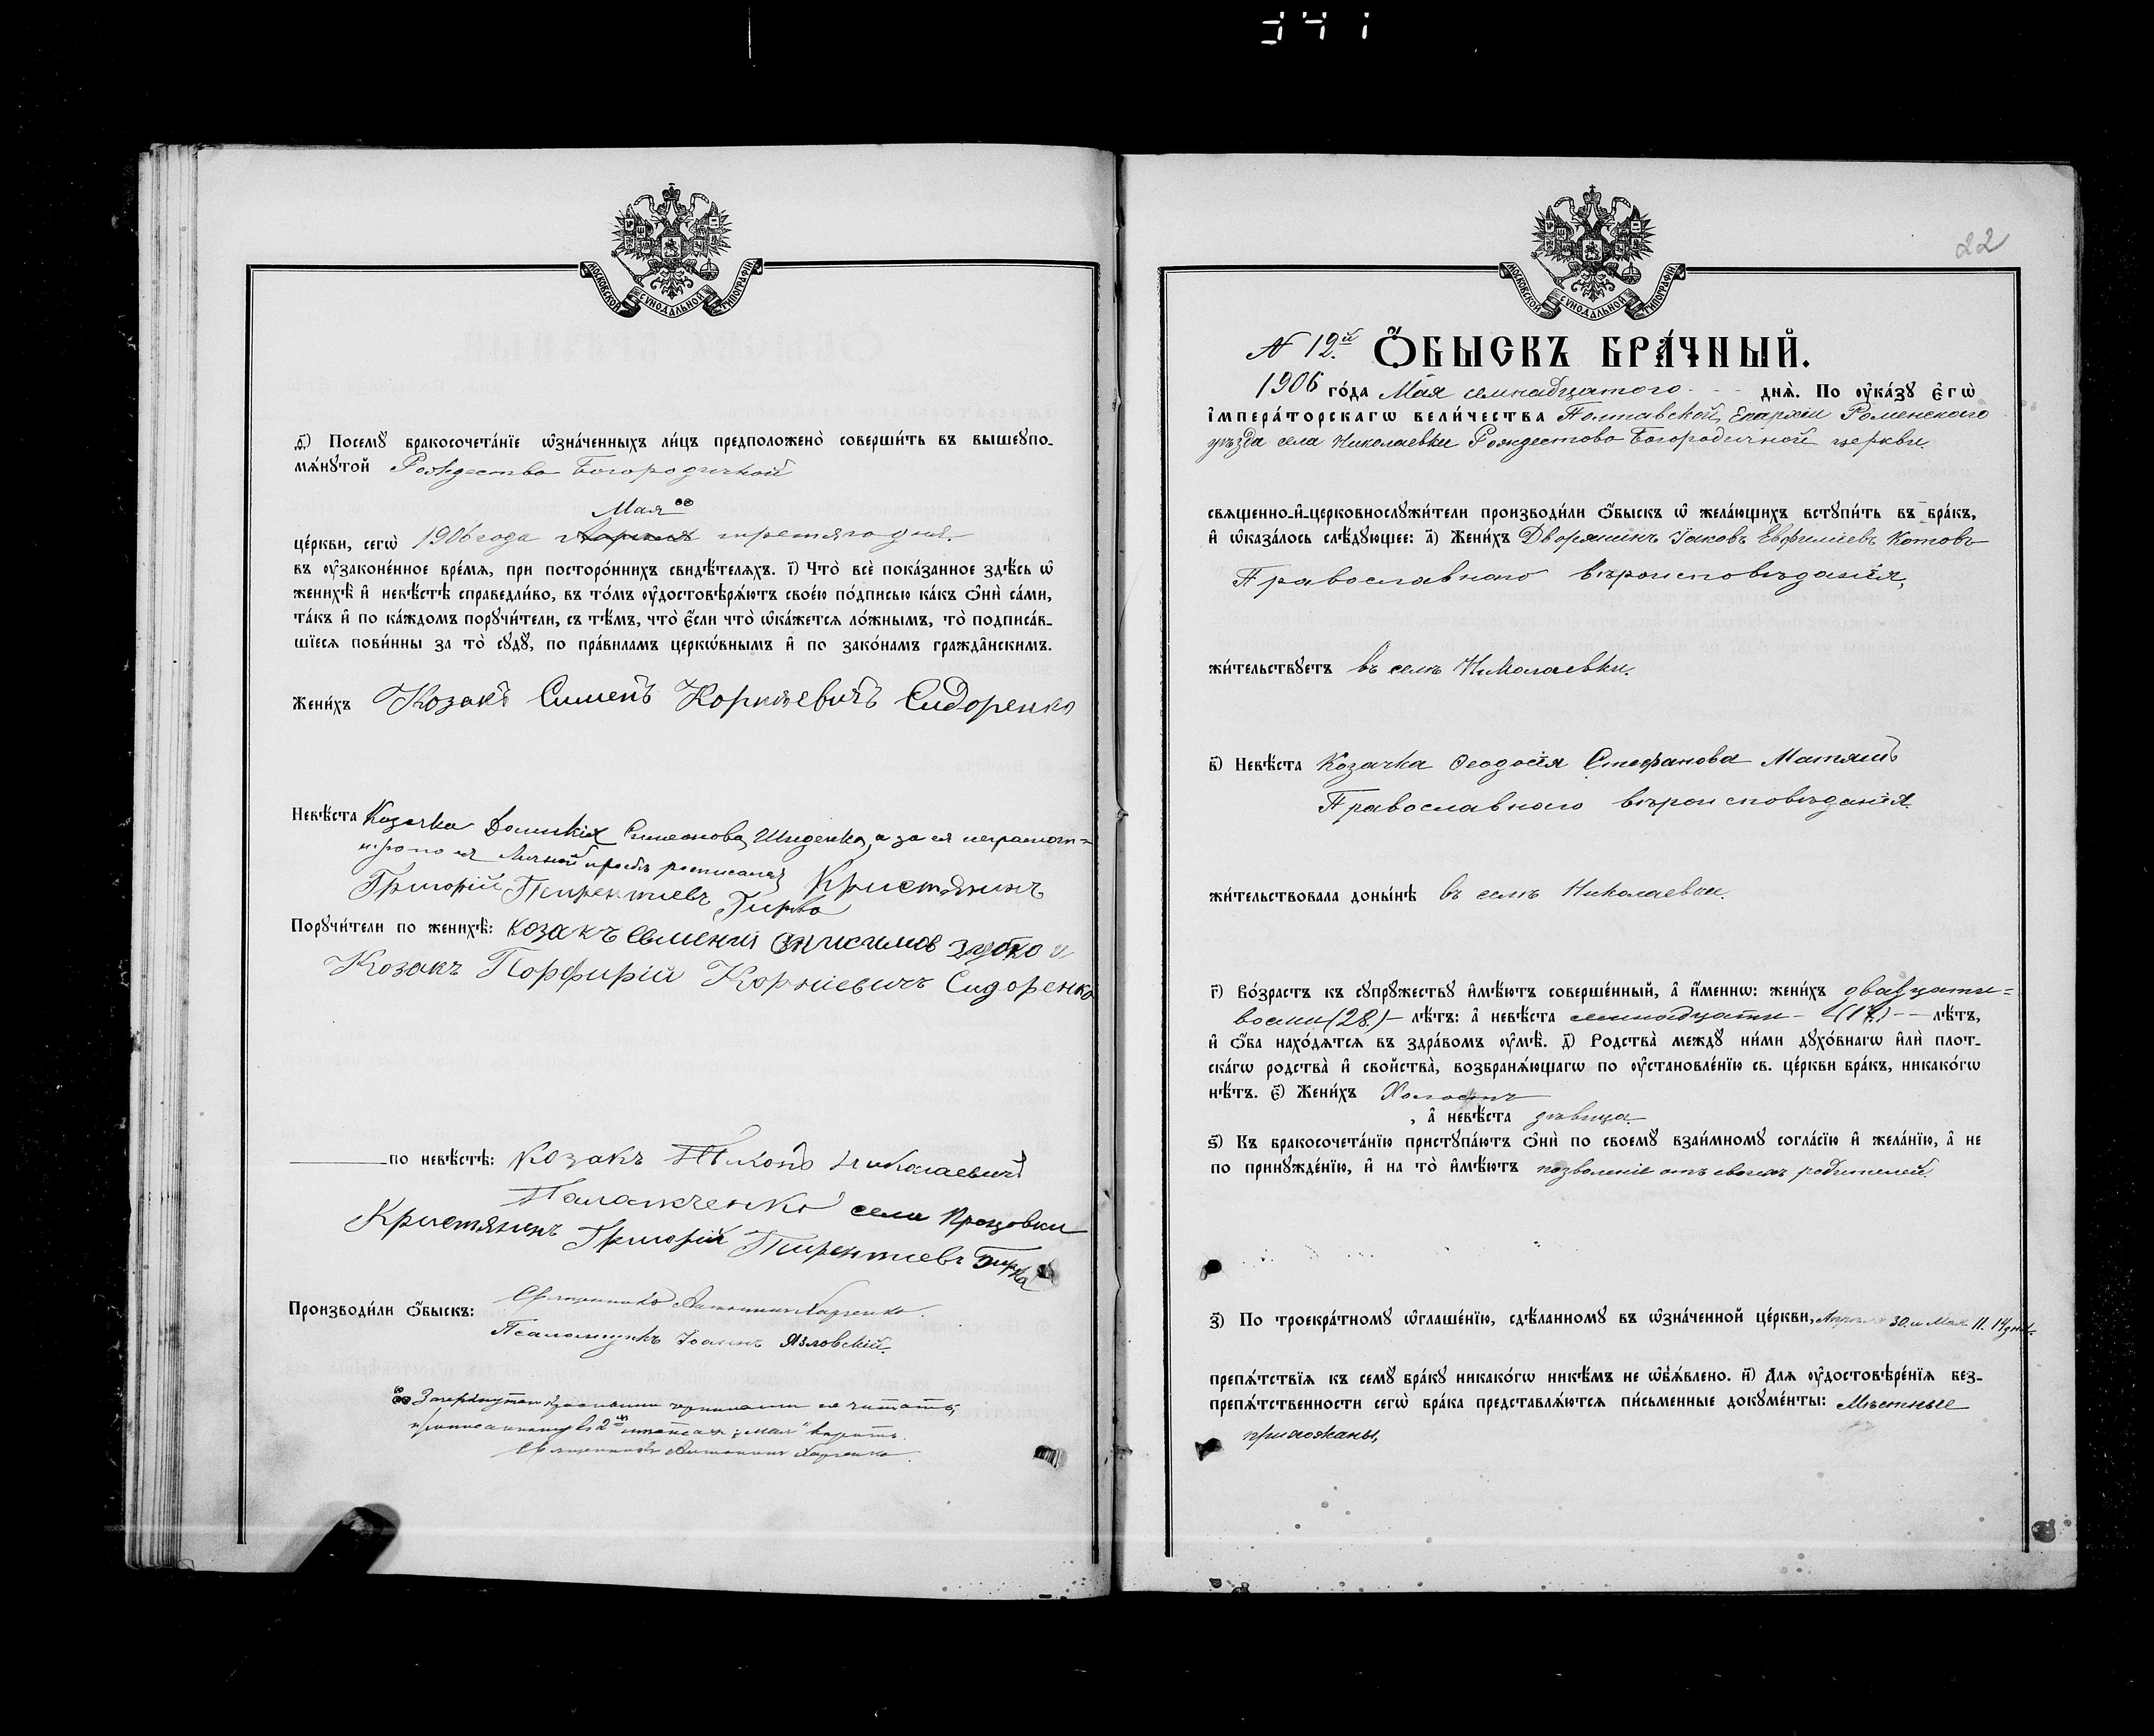 МОСКОВСКОЙ СУНОДАЛЬНОЙ ТИПОГРАФІИ
ѳ҃) Посемꙋ бракосочета́нїе ѡ҆зна́ченныхъ ли́цъ предположено̀ соверши́ть въ вышеꙋпо-
мѧ́нꙋтой Рождество Богородичной
Мая
це́ркви, сегѡ̀ 1906 года Апреля третяго дня
въ ᲂу҆законе́нное вре́мѧ, при посторо́ннихъ свидѣ́телѧхъ. і҃) Что̀ всѐ пока́занное здѣ́сь ѡ҆
женихѣ̀ и҆ невѣ́стѣ справедли́во, въ то́мъ ᲂу҆достовѣрѧ́ютъ свое́ю по́дписью ка́къ ѻ҆нѝ са́ми,
та́къ и҆ по ка́ждомъ порꙋчи́тели, съ тѣ́мъ, что̀ є҆́сли что̀ ѡ҆ка́жетсѧ ло́жнымъ, то̀ подписа́в-
шїесѧ пови́нны за то̀ сꙋдꙋ̀, по пра́виламъ церкѡ́внымъ и҆ по зако́намъ гражда̂нскимъ.
Жени́хъ Козакъ Сименъ Корніевичъ Сидоренко
Невѣ́ста Козачка Домникія Симеонова Шиденко, а за ея неграмот=
ную по ея личной просьбѣ росписался Кристянинъ
Григорій Терентіевъ Гирка
Порꙋчи́тели по женихѣ̀: козакъ Евмений Онисимов Зубко и
Козакъ Порфирій Корніевичъ Сидоренко
по невѣ́стѣ: козакъ Николаевичъ
села Процовки
Кристянинъ Григорій Терентіевъ Гирка
Производи́ли ѻ҆́быскъ: Священникъ Антонин Харченко
Псаломщикъ Іоаннъ Язловскій.
Зачеркнутое красными чернилами не читать,
„мая" вѣрить.
Священникъ Антонин Харченко
МОСКОВСКОЙ СУНОДАЛЬНОЙ ТИПОГРАФІИ
22
N 12й ѺБЫСКЪ БРА́ЧНЫЙ.
1906 го́да Мая семнадцатого днѧ̀. По ᲂу҆ка́зꙋ є҆гѡ̀
і҆мпера́торскагѡ вели́чества Полтавской Епархіи Роменского
уѣзда села Николаевки Рождество Богородичной церкви
свѧщенно-и҆-церковнослꙋжи́тели производи́ли ѻ҆́быскъ ѡ҆ жела́ющихъ встꙋпи́ть въ бра́къ,
и҆ ѡ҆каза́лось слѣ́дꙋющее: а҃) Жени́хъ Дворянинъ Іаковъ Евфиміевъ Котовъ
Православного вѣроисповѣданія,
жи́тельствꙋетъ въ селѣ Николаевки.
в҃) Невѣ́ста Козачка Ѳеодосія Стефанова Матяшъ
Православного вѣроисповѣданія.
жи́тельствовала доны́нѣ въ селѣ Николаевки.
г҃) Во́зрастъ къ сꙋпрꙋ́жествꙋ и҆мѣ́ютъ соверше́нный, а҆ и҆́меннѡ: жени́хъ двадцати=
восми (28.) лѣ́тъ: а҆ невѣ́ста семнадцати (17.) лѣ́тъ,
и҆ ѻ҆́ба нахо́дѧтсѧ въ здра́вомъ ᲂу҆мѣ̀. д҃) Родства̀ междꙋ ни́ми дꙋхо́внагѡ и҆лѝ плот-
ска́гѡ родства̀ и҆ свойства̀, возбранѧ́ющагѡ по ᲂу҆становле́нїю св. це́ркви бра́къ, никако́гѡ
нѣ́тъ. є҃) Жени́хъ Холостъ
, а҆ невѣ́ста дѣвица.
ѕ҃) Къ бракосочета́нїю пристꙋпа́ютъ ѻ҆нѝ по своемꙋ̀ взаи́мномꙋ согла́сїю и҆ жела́нїю, а҆ не
по принꙋжде́нїю, и҆ на то̀ и҆мѣ́ютъ позволеніе отъ своихъ родителей
з҃) По троекра́тномꙋ ѡ҆глаше́нїю, сдѣ́ланномꙋ въ ѡ҆зна́ченной це́ркви, Апреля 30. и Мая 11. 14 дня
препѧ́тствїѧ къ семꙋ̀ бра́кꙋ никако́гѡ никѣ́мъ не ѡ҆б̾ѧ́влено. и҃) Длѧ ᲂу҆достовѣре́нїѧ без-
препѧ́тственности сегѡ̀ бра́ка представлѧ́ютсѧ пи́сьменные докꙋме́нты: Мѣстные
прихожаны,